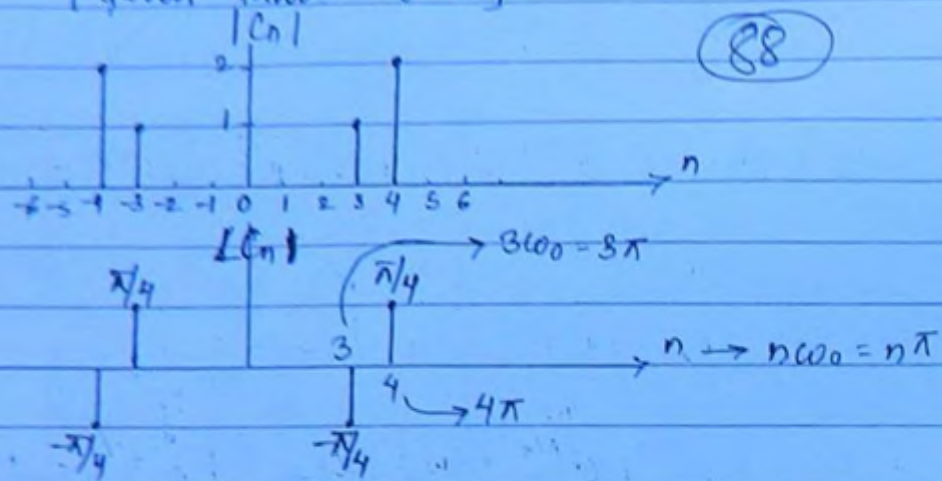 |Cn|
88
2
1
n
-6 -5 -4 -3 -2 -1 0 1 2 3 4 5 6
∠Cn
3ω0 = 3π
π/4
π/4
3
n → nω0 = nπ
4
4π
-π/4
-π/4